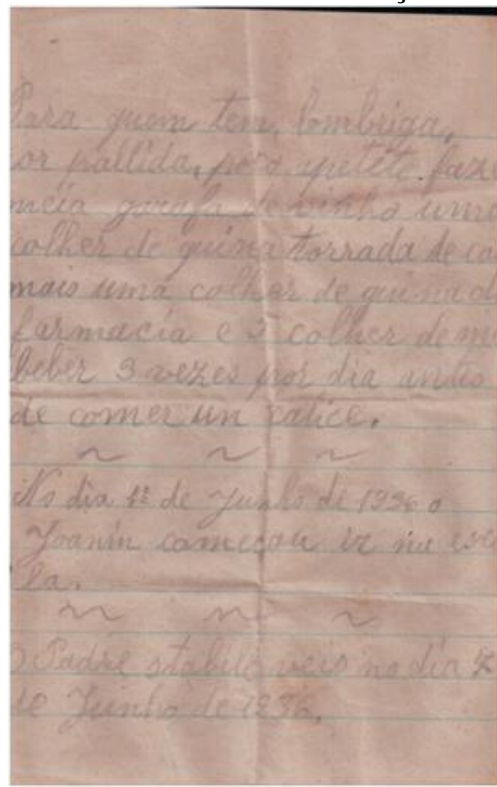 Para quem tem lombriga,
or pallida, po o apitite. faze
meia garafa de vinho uma
colher de quina torrada de ca
mais uma colher de quina d
farmacía e 3 colher de m
beber 3 vezes por dia antes
de comer un calice.
~ ~ ~
No dia 1º de Junho de 1936 o
Joanin começou ir na esco
la.
~ ~ ~
O Padre stabile veio no dia 7
de Junho de 1936.